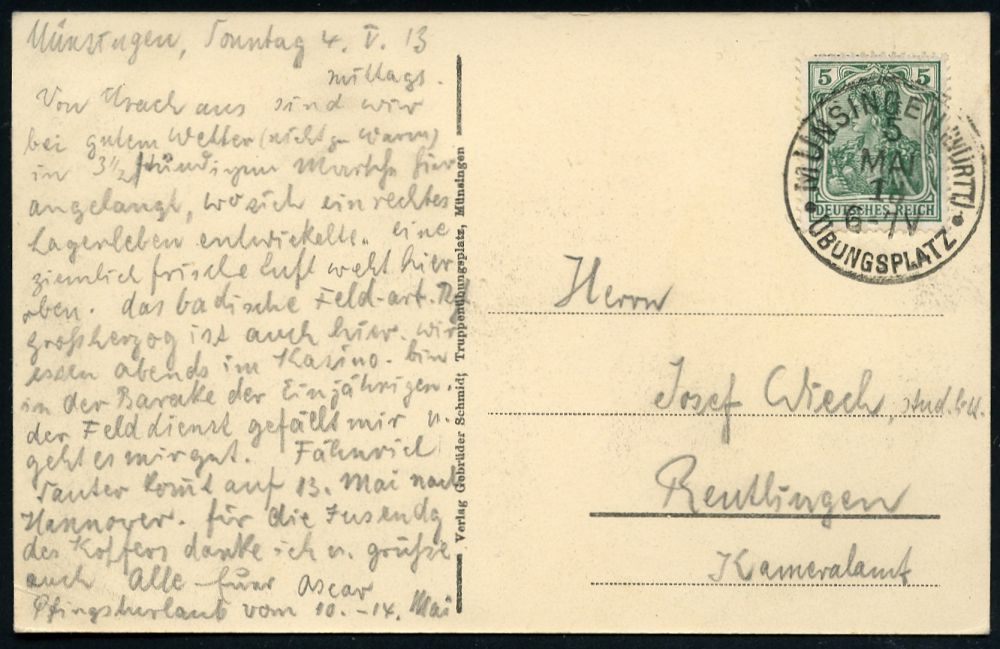 Münsingen, Sonntag 4. V. 13
mittags.
Von Urach aus sind wir
bei gutem Wetter (nicht zu warm)
in 3½ stündigem Marsche hier
angelangt, wo sich ein rechtes
Lagerleben entwickelte. eine
ziemlich frische Luft weht hier
oben. das badische Feld-art. Rgt
großherzog ist auch hier. wir
essen abends im Kasino. bin
in der Barake der Einjährigen.
der Felddienst gefällt mir u.
geht es mir gut. Fähnrich
Sauter komt auf 13. Mai nach
Hannover. für die Zusendg
des Koffers danke ich u. grüße
auch Alle Euer Oscar
Pfingsturlaub vom 10.-14. Mai
Verlag Gebrüder Schmid; Truppenübungsplatz, Münsingen
5 5
DEUTSCHES REICH
MÜNSINGEN (WÜRTT)
5
MAI
6-7V
ÜBUNGSPLATZ
Herrn
Josef Wiech, stud.
Reutlingen
Kameralamt